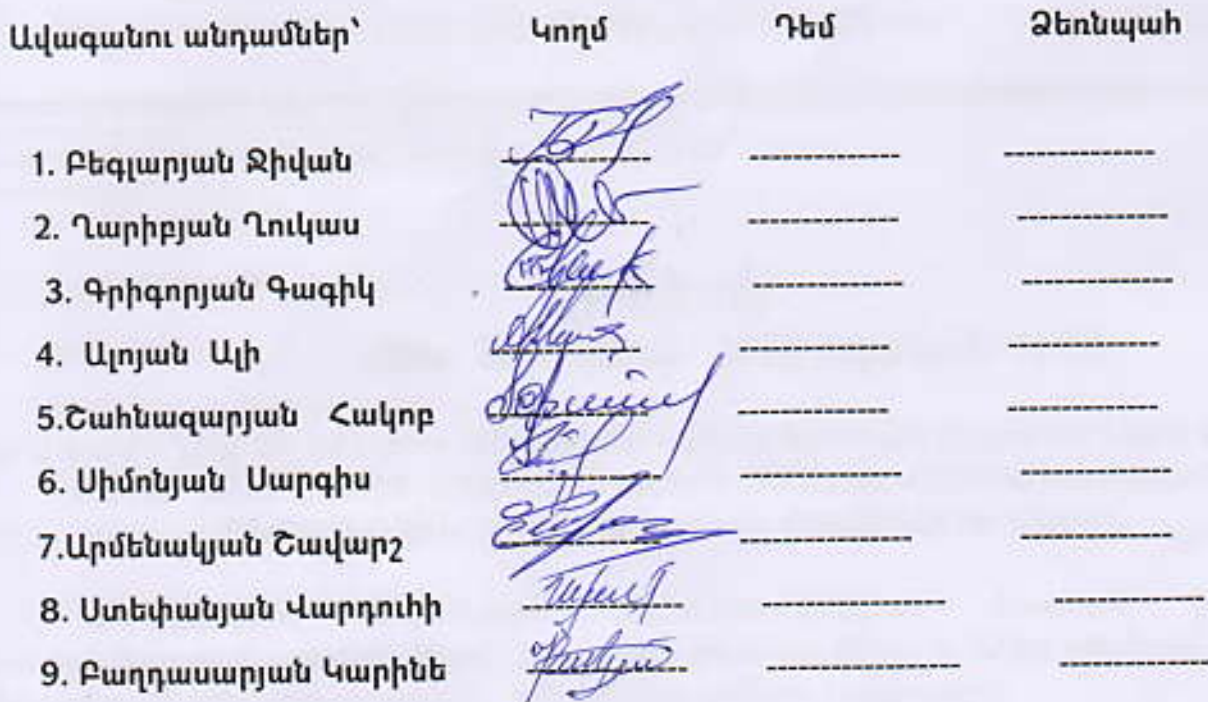 Ավագանու անդամներ՝ Կողմ Դեմ Ձեռնպահ
1. Բեգլարյան Ջիվան
2. Ղարիբյան Ղուկաս
3. Գրիգորյան Գագիկ
4. Ալոյան Ալի
5.Շահնազարյան Հակոբ
6. Սիմոնյան Սարգիս
7.Արմենակյան Շավարշ
8. Ստեփանյան Վարդուհի
9. Բաղդասարյան Կարինե